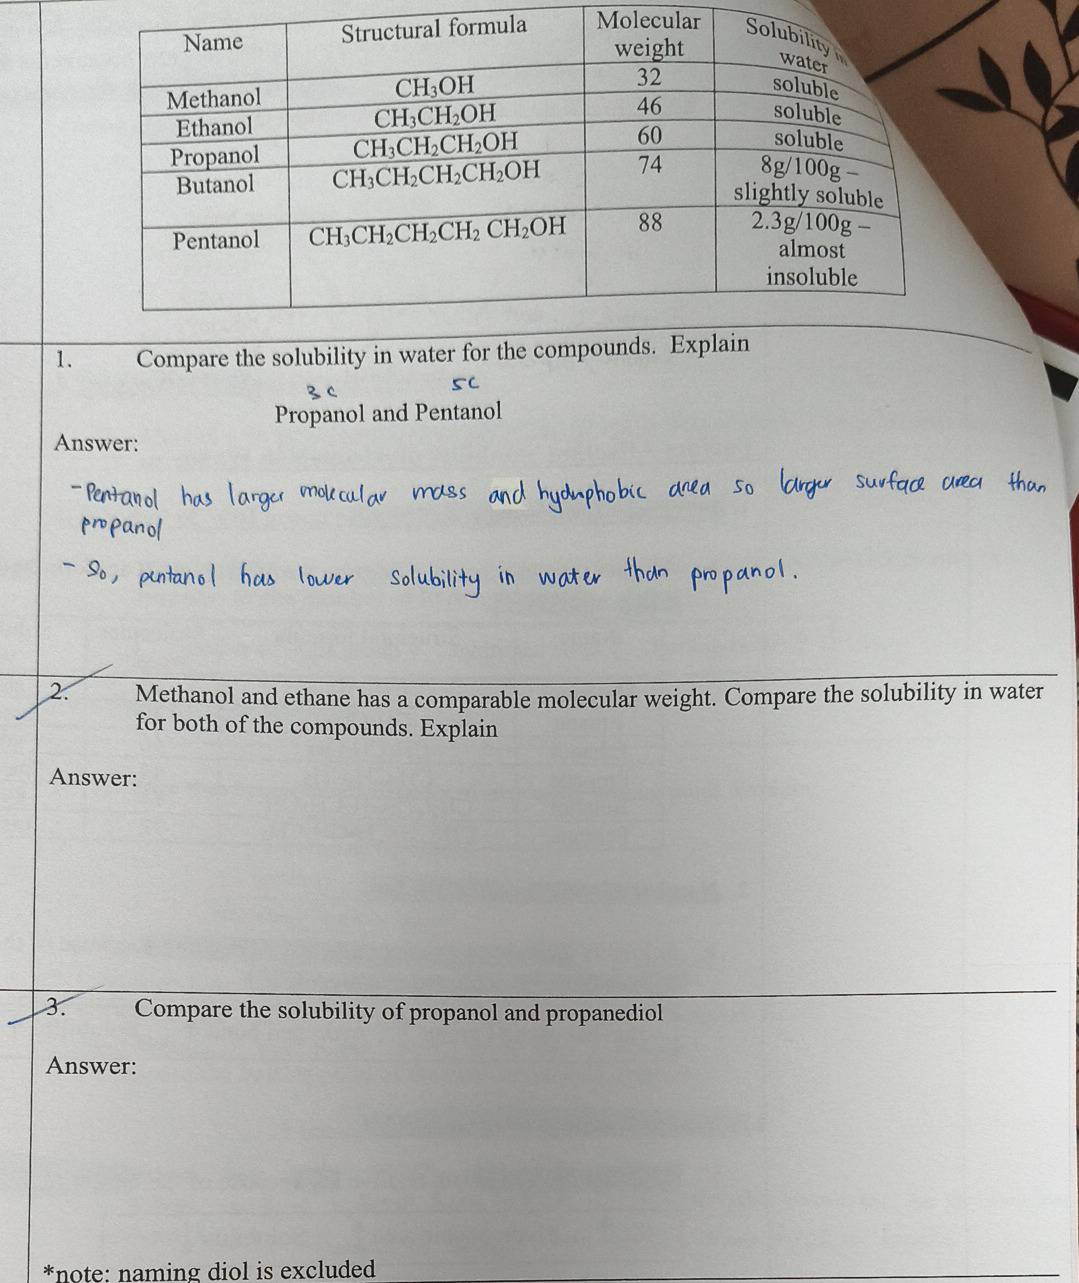 Name Structural formula Molecular weight Solubility in water
Methanol CH₃OH 32 soluble
Ethanol CH₃CH₂OH 46 soluble
Propanol CH₃CH₂CH₂OH 60 soluble
Butanol CH₃CH₂CH₂CH₂OH 74 8g/100g – slightly soluble
Pentanol CH₃CH₂CH₂CH₂ CH₂OH 88 2.3g/100g – almost insoluble
1. Compare the solubility in water for the compounds. Explain
3C 5C
Propanol and Pentanol
Answer:
- Pentanol has larger molecular mass and hydrophobic area so larger surface area than
propanol
- So, pentanol has lower solubility in water than propanol.
2. Methanol and ethane has a comparable molecular weight. Compare the solubility in water
for both of the compounds. Explain
Answer:
3. Compare the solubility of propanol and propanediol
Answer:
*note: naming diol is excluded